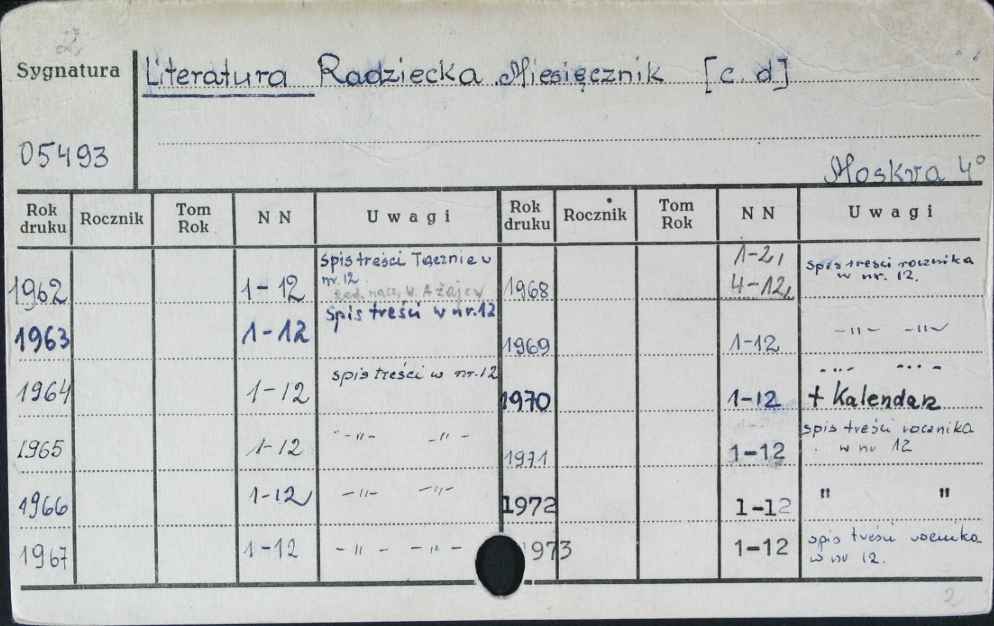 2
Sygnatura Literatura Radziecka Miesięcznik [c. d]
05493
Moskva 4°
Rok druku Rocznik Tom Rok NN Uwagi Rok druku Rocznik Tom Rok NN Uwagi
1962 1-12 spis treści Tącznie w nr. 12 W. Ażajew 1968 1-2, 4-12, spis treści rocznika w nr. 12.
1963 1-12 Spis treści w nr. 12 1969 1-12 -"- -"-
1964 1-12 spis treści w nr. 12 1970 1-12 + Kalendarz
1965 1-12 -"- -"- 1971 1-12 spis treści rocznika w nr 12
1966 1-12 -"- -"- 1972 1-12 " "
1967 1-12 -"- -"- 1973 1-12 spis treści rocznika w nr 12.
2